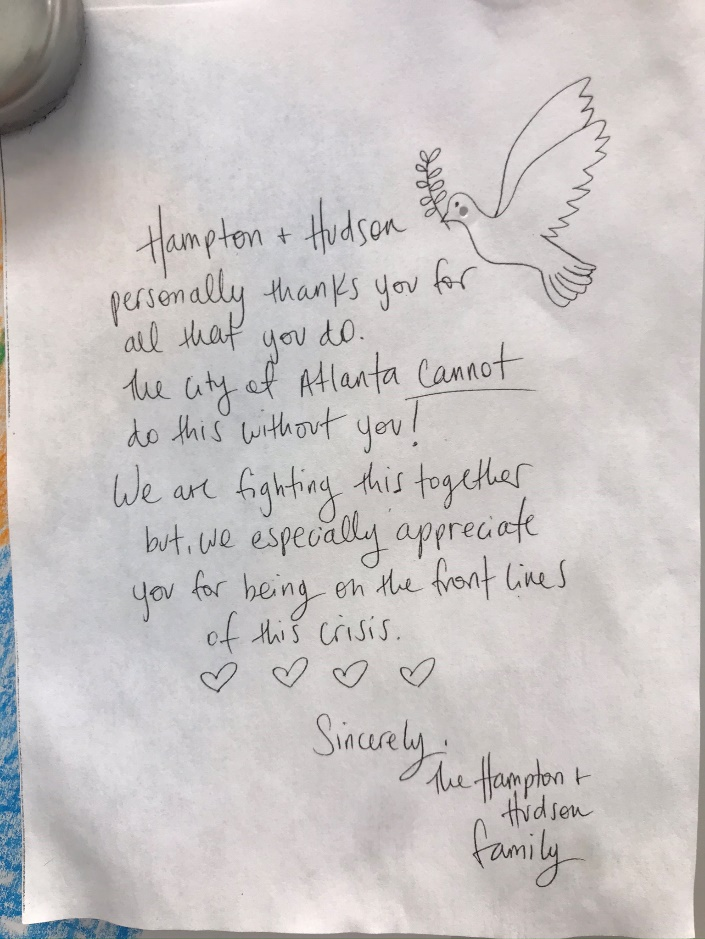 Hampton + Hudson
personally thanks you for
all that you do.
The city of Atlanta cannot
do this without you!
We are fighting this together
but, we especially appreciate
you for being on the front lines
of this crisis.
♡ ♡ ♡ ♡
Sincerely,
The Hampton +
Hudson
family